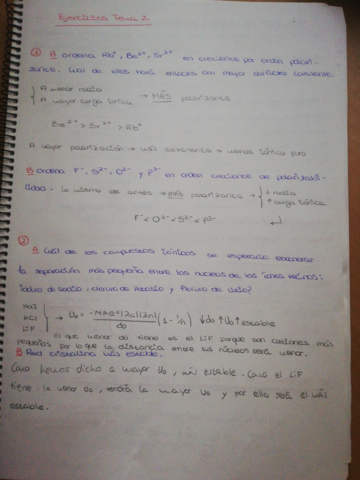 Ejercicios Tema 2
① A ordena Rb⁺, Be²⁺, Sr²⁺ en creciente por orden polari-
zante. Cual de ellos hará enlaces con mayor carácter covalente.
A menor radio
A mayor carga iónica → MÁS polarizante
Be²⁺ > Sr²⁺ > Rb⁺
A mayor polarización → más covalente → menos iónica pura
B ordena F⁻, S²⁻, O²⁻ y P³⁻ en orden creciente de polarizabi-
lidad. → más polarizante → ↑ radio
↑ carga iónica
F⁻ < O²⁻ < S²⁻ < P³⁻
② A Cuál de los compuestos iónicos se esperaría encontrar
la separación más pequeña entre los nucleos de los iones vecinos:
Ioduro de sodio, cloruro de Potasio y Fluoruro de Litio?
KCl
LiF → U₀ = (1 - 1/n) ↓d₀ ↑U₀ ↑estable
El que menor do tiene es el LiF porque son cationes más
pequeños por lo que la distancia entre sus núcleos será menor.
B Red cristalina más estable.
Como hemos dicho a mayor U₀, más estable. Como el LiF
tiene la menor d₀, tendrá la mayor U₀ y por ello será el más
estable.